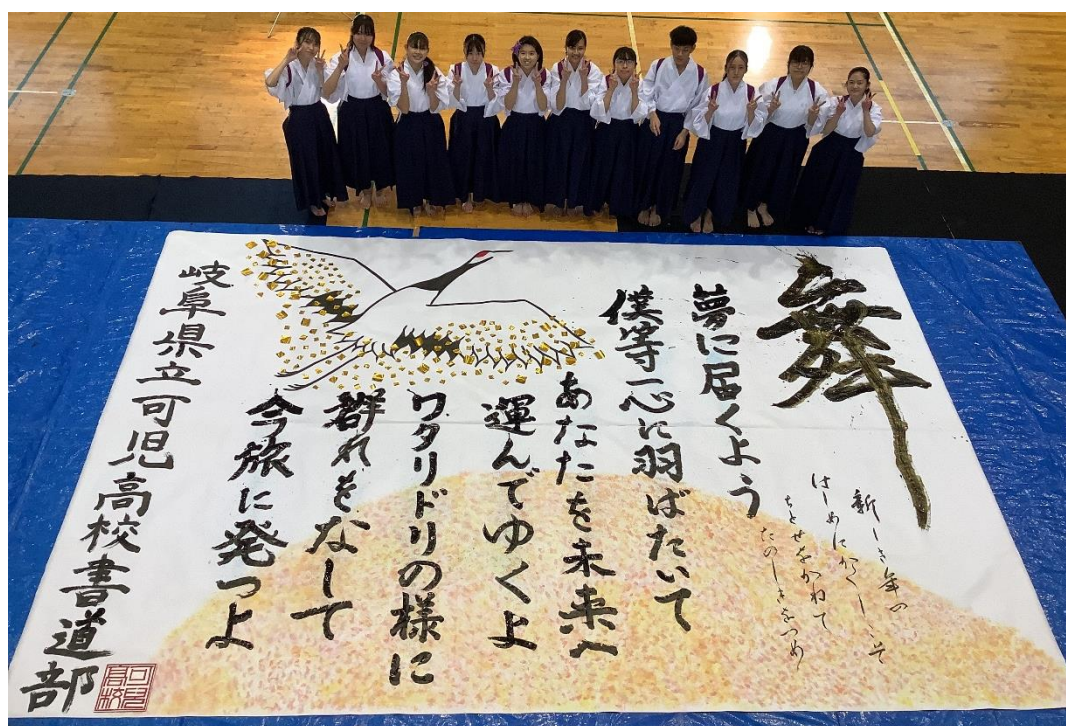 舞
新しき年の
はしめにかくしこそ
ちとせをかねて
たのしきをつめ
夢に届くよう
僕等一心に羽ばたいて
あなたを未来へ
運んでゆくよ
ワタリドリの様に
群れをなして
今旅に発つよ
岐阜県立可児高校書道部
可児
高校